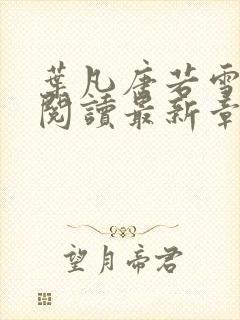 葉凡唐若雪
閱讀最新章
望月帝君